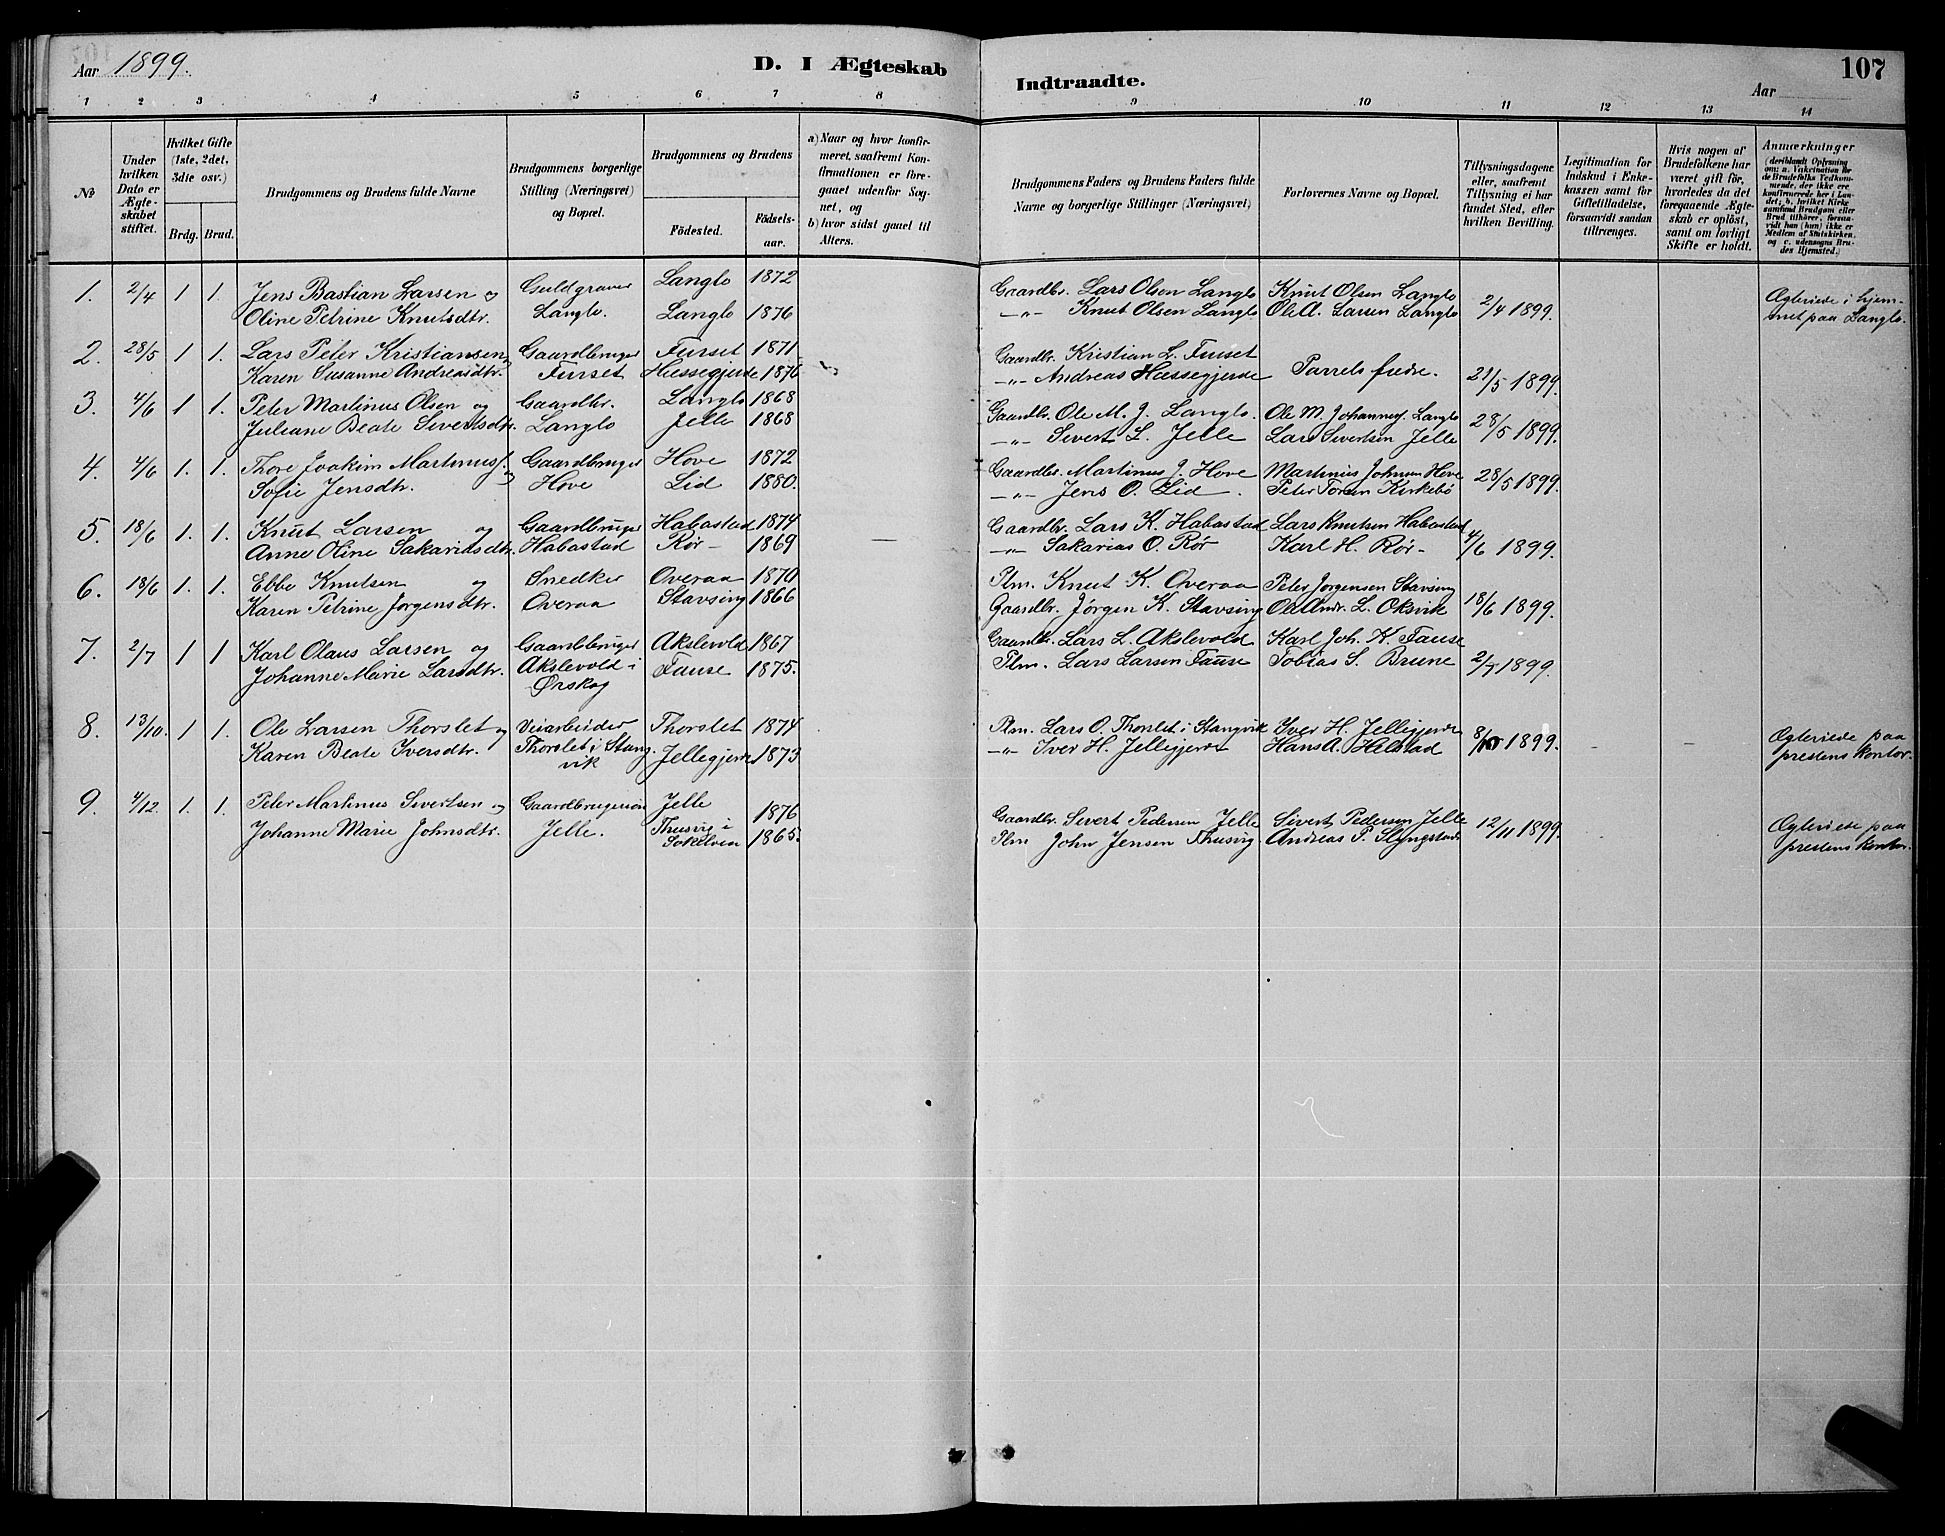 Aar 1899.
D. I Ægteskab
Indtraadte.
107
Aar
1 2 3 4 5 6 7 8 9 10 11 12 13 14
№
Under hvilken Dato er Ægteskabet stiftet.
Hvilket Gifte (1ste, 2det, 3die osv.)
Brdg. Brud.
Brudgommens og Brudens fulde Navne
Brudgommens borgerlige Stilling (Næringsvei) og Bopæl.
Brudgommens og Brudens
Födested.
Födsels-aar.
a) Naar og hvor konfirmeret, saafremt Konfirmationen er foregaaet udenfor Sognet, og
b) hvor sidst gaaet til Alters.
Brudgommens Faders og Brudens Faders fulde Navne og borgerlige Stillinger (Næringsvei)
Forlovernes Navne og Bopæl.
Tillysningsdagene eller, saafremt Tillysning ei har fundet Sted, efter hvilken Bevilling.
Legitimation for Indskud i Enkekassen samt for Giftetilladelse, forsaavidt saadan tiltrænges.
Hvis nogen af Brudefolkene har været gift för, hvorledes da det foregaaende Ægteskab er oplöst, samt om lovligt Skifte er holdt.
Anmærkninger (deriblandt Oplysning om: a. Vakcination for de Brudefolks Vedkommende, der ikke ere konfirmerede her i Landet; b. hvilket Kirkesamfund Brudgom eller Brud tilhörer, forsaavidt han (hun) ikke er Medlem af Statskirken, og c. udensogns Brudes Hjemsted.)
1. 2/4 1 1. Jens Bastian Larsen og Guldgraver Langlo 1872 Gaardbr. Lars Olsen Langlo Knut Olsen Langlo 2/4 1899. Ægteviede i hjem-
Oline Petrine Knutsdtr. Langlo. Langlo 1876 -"- Knut Olsen Langlo Ole A. Larsen Langlo met paa Langlo.
2. 28/5 1 1. Lars Peter Kristiansen og Gaardbruger Furset 1871 Gaardbr. Kristian L. Furset Parrets fædre. 21/5 1899.
Karen Susanne Andreasdtr. Furset Hæssegjerde 1876 -"- Andreas Hæssegjerde
3. 4/6 1 1. Peter Martinus Olsen og Gaardbr. Langlo 1868 Gaardbr. Ole M. J. Langlo. Ole M. Johannes. Langlo 28/5 1899.
Juliane Beate Sivertsdtr. Langlo Jelle 1868 -"- Sivert L. Jelle Lars Sivertsen Jelle
4. 4/6 1. 1. Thore Joakim Martinus. og Gaardbruger Hove 1872 Gaardbr. Martinus J. Hove Martinus Johnsen Hove 28/5 1899.
Sofie Jensdtr. Hove Lid 1880. -"- Jens O. Lid. Peter Toresen Kirkebö
5. 18/6 1. 1. Knut Larsen og Gaardbruger Habostad 1874 — Gaardbr. Lars K. Habostad Lars Knutsen Habostad 4/6 1899.
Anne Oline Sakariasdtr. Habostad Rör - 1869 -"- Sakarias O. Rör Karl H. Rör -
6. 18/6 1. 1. Ebbe Knutsen og Snedker Overaa 1870 Plm. Knut K. Overaa Peter Jorgensen Stavsing 18/6 1899.
Karen Petrine Jørgensdtr. Overaa Stavsing 1866 Gaardbr. Jørgen K. Stavsing Ole Andr. L. Oksvik
7. 2/7 1 1 Karl Olaus Larsen og Gaardbruger Akslevold 1867 Gaardbr. Lars L. Akslevold Karl Joh. K. Fause 2/7 1899.
Johanne Marie Larsdtr. Akslevold i Fause 1875. Plm. Lars Larsen Fause Tobias S. Brune
Ørskog
8. 13/10. 1 1. Ole Larsen Thorslet og Veiarbeider Thorslet 1874 Plm. Lars O. Thorslet i Stangvik Iver H. Jellegjerde 8/10 1899. Ægteviede paa
Karen Beate Iversdtr. Thorslet i Stang- Jellegjerde 1873 -"- Iver H. Jellegjerde Hans A. Helstad prestens kontor.
vik
9. 4/12. 1. 1. Peter Martinus Sivertsen og Gaardbrugersön Jelle 1876 Gaardbr. Sivert Pedersen Jelle Sivert Pedersen Jelle 12/11 1899. Ægteviede paa
Johanne Marie Johnsdtr. Jelle. Thusvig i Sökelven 1865. Plm John Jensen Thusvig. Andreas P. Slyngstad prestens kontor.